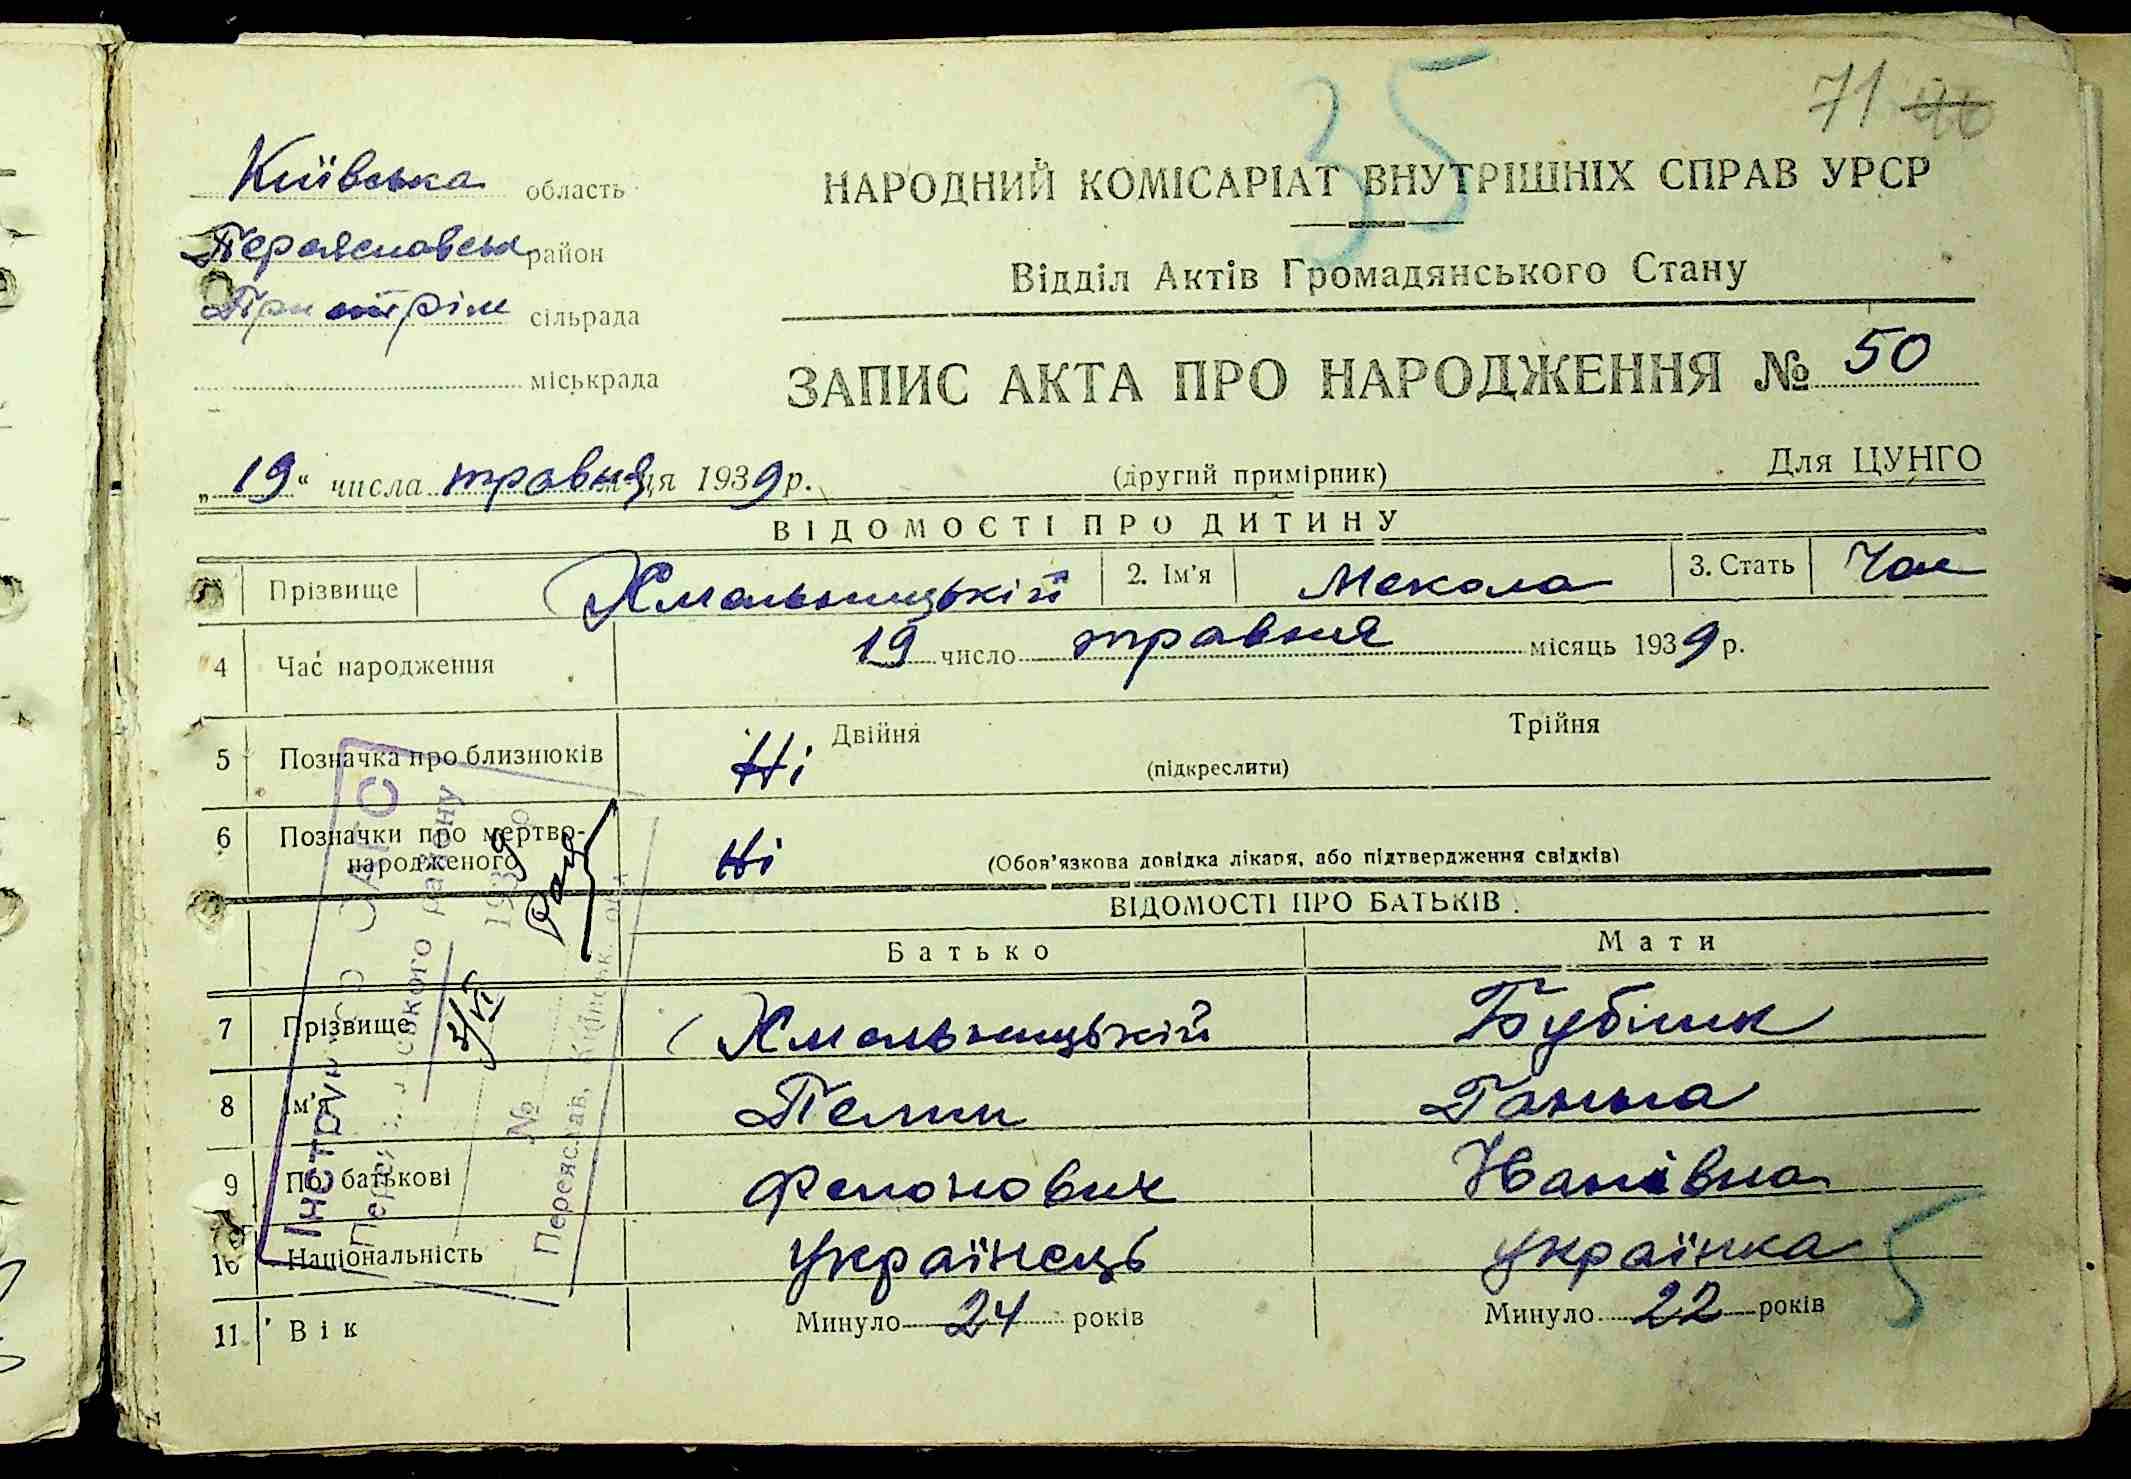 35
71 40
Київська область
НАРОДНИЙ КОМІСАРІАТ ВНУТРІШНІХ СПРАВ УРСР
Переяславськ район
Відділ Актів Громадянського Стану
сільрада
міськрада
ЗАПИС АКТА ПРО НАРОДЖЕННЯ № 50
„19“ числа травня 1939 р.
(другий примірник)
Для ЦУНГО
ВІДОМОСТІ ПРО ДИТИНУ
Прізвище Хмельницькій 2. Ім'я Мекола 3. Стать Чол
4 Час народження 19 число травня місяць 1939 р.
5 Позначка про близнюків Ні Двійня (підкреслити) Трійня
6 Позначки про мертво-
народженого Ні (Обов'язкова довідка лікаря, або підтвердження свідків)
ВІДОМОСТІ ПРО БАТЬКІВ
Батько Мати
7 Прізвище Хмельницькій Бублик
8 Ім'я Ганна
9 По батькові Іванівна
10 Національність українець українка
11 Вік Минуло 24 років Минуло 22 років
5